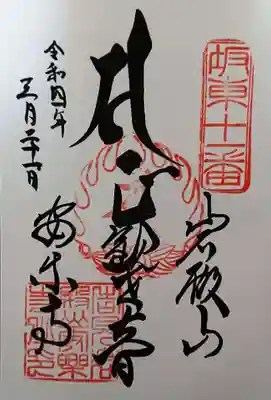 坂東十一番
岩殿山
正観世音
安楽寺
令和四年
三月二十一日